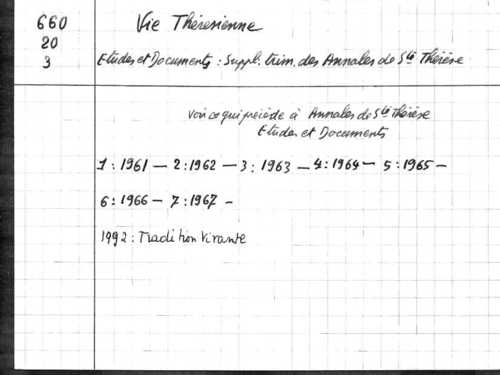 660 Vie Thérésienne
20
3 Etudes et Documents : Suppl. trim. des Annales de Ste Thérèse
voir ce qui précède à Annales de Ste Thérèse
Etudes et Documents
1 : 1961 — 2 : 1962 — 3 : 1963 — 4 : 1964 — 5 : 1965 —
6 : 1966 — 7 : 1967 —
1992 : Tradition Vivante